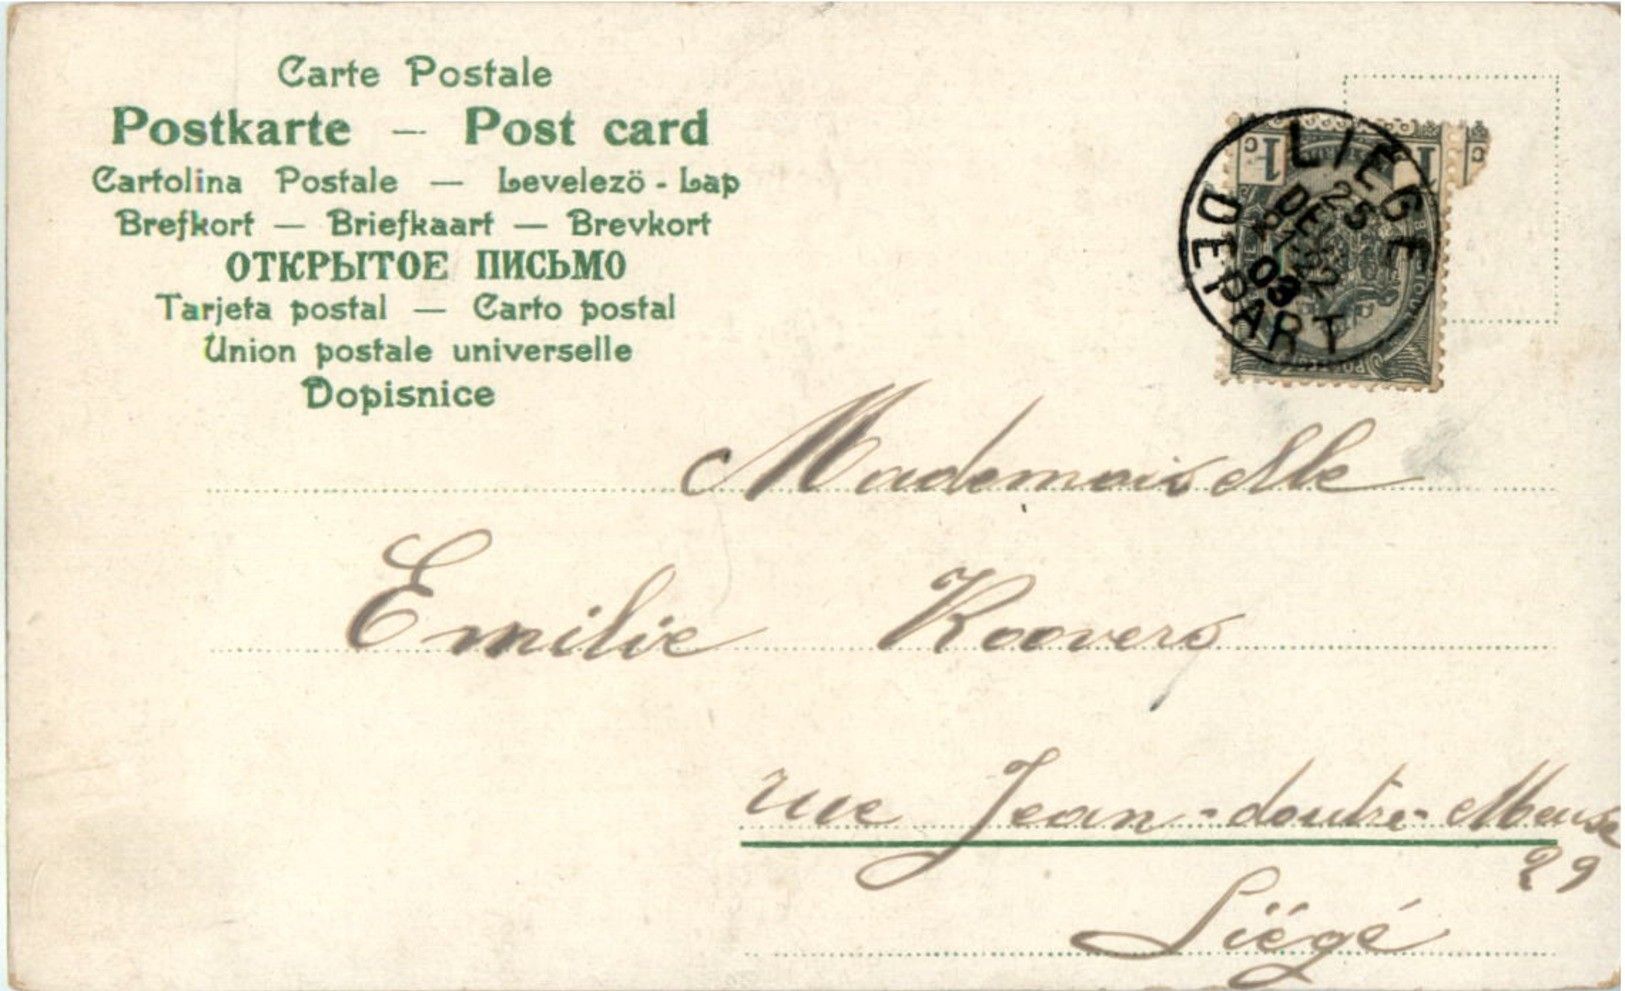 Carte Postale
Postkarte — Post card
Cartolina Postale — Levelezö-Lap
Brefkort — Briefkaart — Brevkort
ОТКРЫТОЕ ПИСЬМО
Tarjeta postal — Carto postal
Union postale universelle
Dopisnice
LIEGE
25
DEPART
1 C
1 C
03
Mademoiselle
Emilie Roovers
rue Jean-doutre-Meuse
29
Liégé